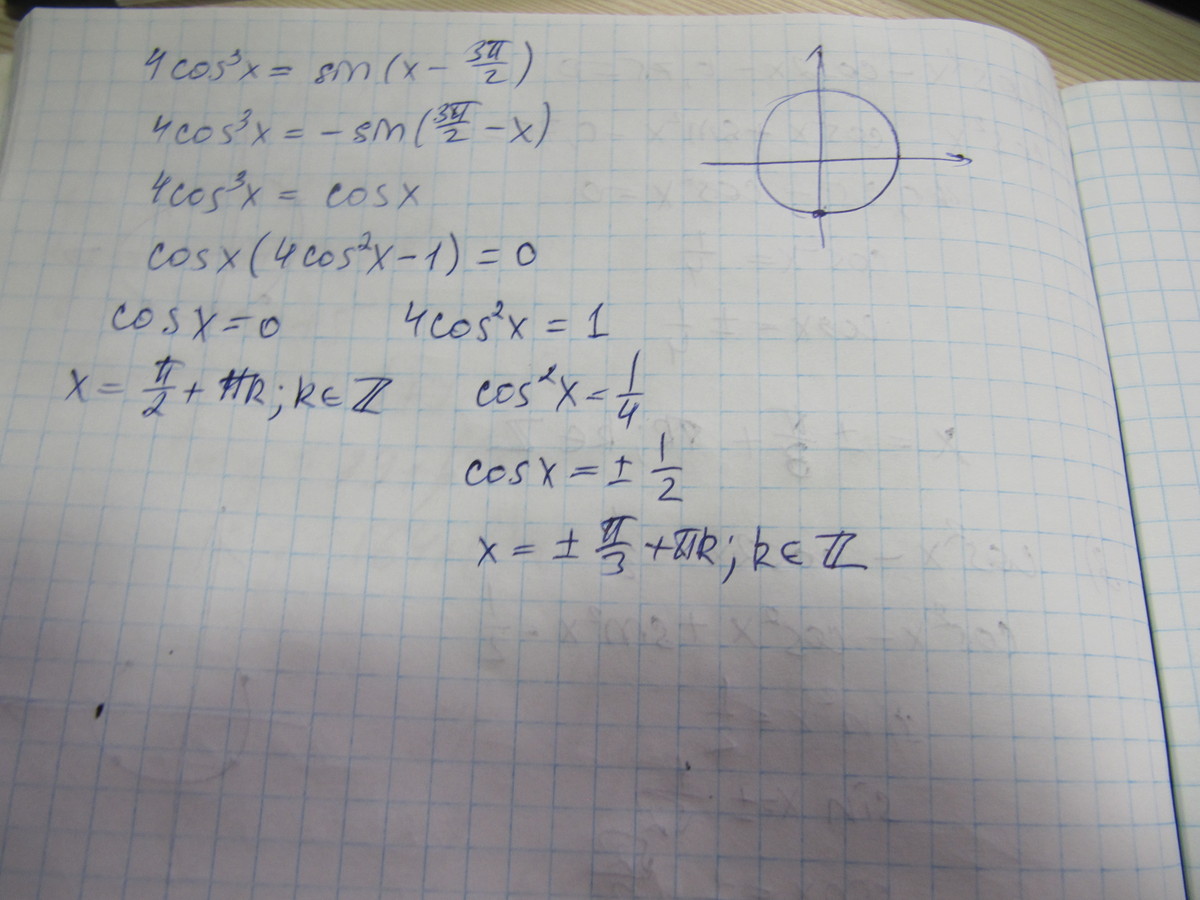 4cos³x = sin(x - 3π/2)
4cos³x = -sin(3π/2 - x)
4cos³x = cosx
cosx(4cos²x - 1) = 0
cosx = 0 4cos²x = 1
x = π/2 + πk; k∈ℤ cos²x = 1/4
cosx = ± 1/2
x = ± π/3 + πk; k∈ℤ